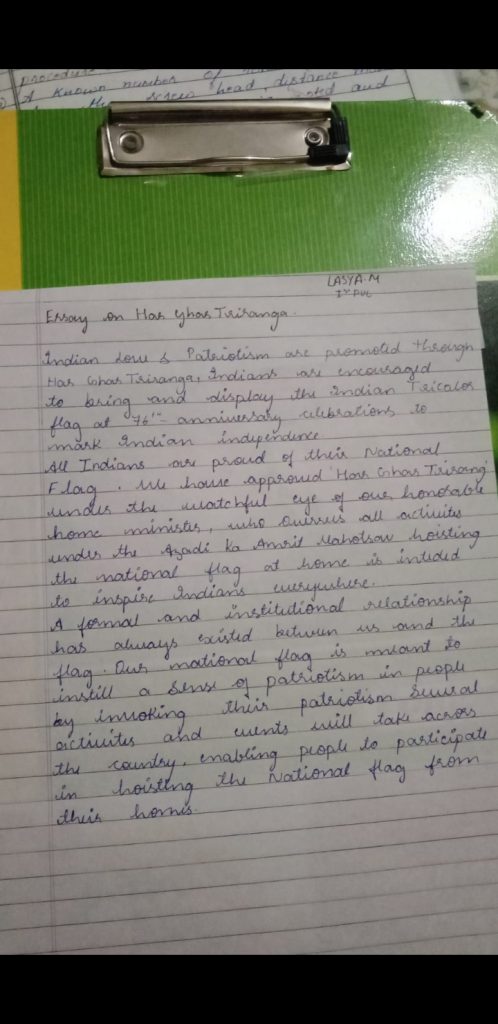 procedure
A known number of
head, distance
and
LASYA.M
I PUC
Essay on Har Ghar Triranga.
Indian Love & Patriotism are promoted through
Har Ghar Triranga, Indians are encouraged
to bring and display the Indian Tricolor
flag at 76th anniversary celebrations to
mark Indian independence
All Indians are proud of their National
Flag. We have approud 'Har Ghar Trirang'
under the watchful eye of our honorable
home minister, who overees all activites
under the Azadi Ka Amrit Mahotsav hoisting
the national flag at home is inteded
to inspire Indians everywhere.
A formal and institutional relationship
has always existed between us and the
flag. Our national flag is meant to
instill a sense of patriotism in people
by invoking their patriotism Several
activites and events will take across
the country, enabling people to participate
in hoisting the National flag from
their homes.